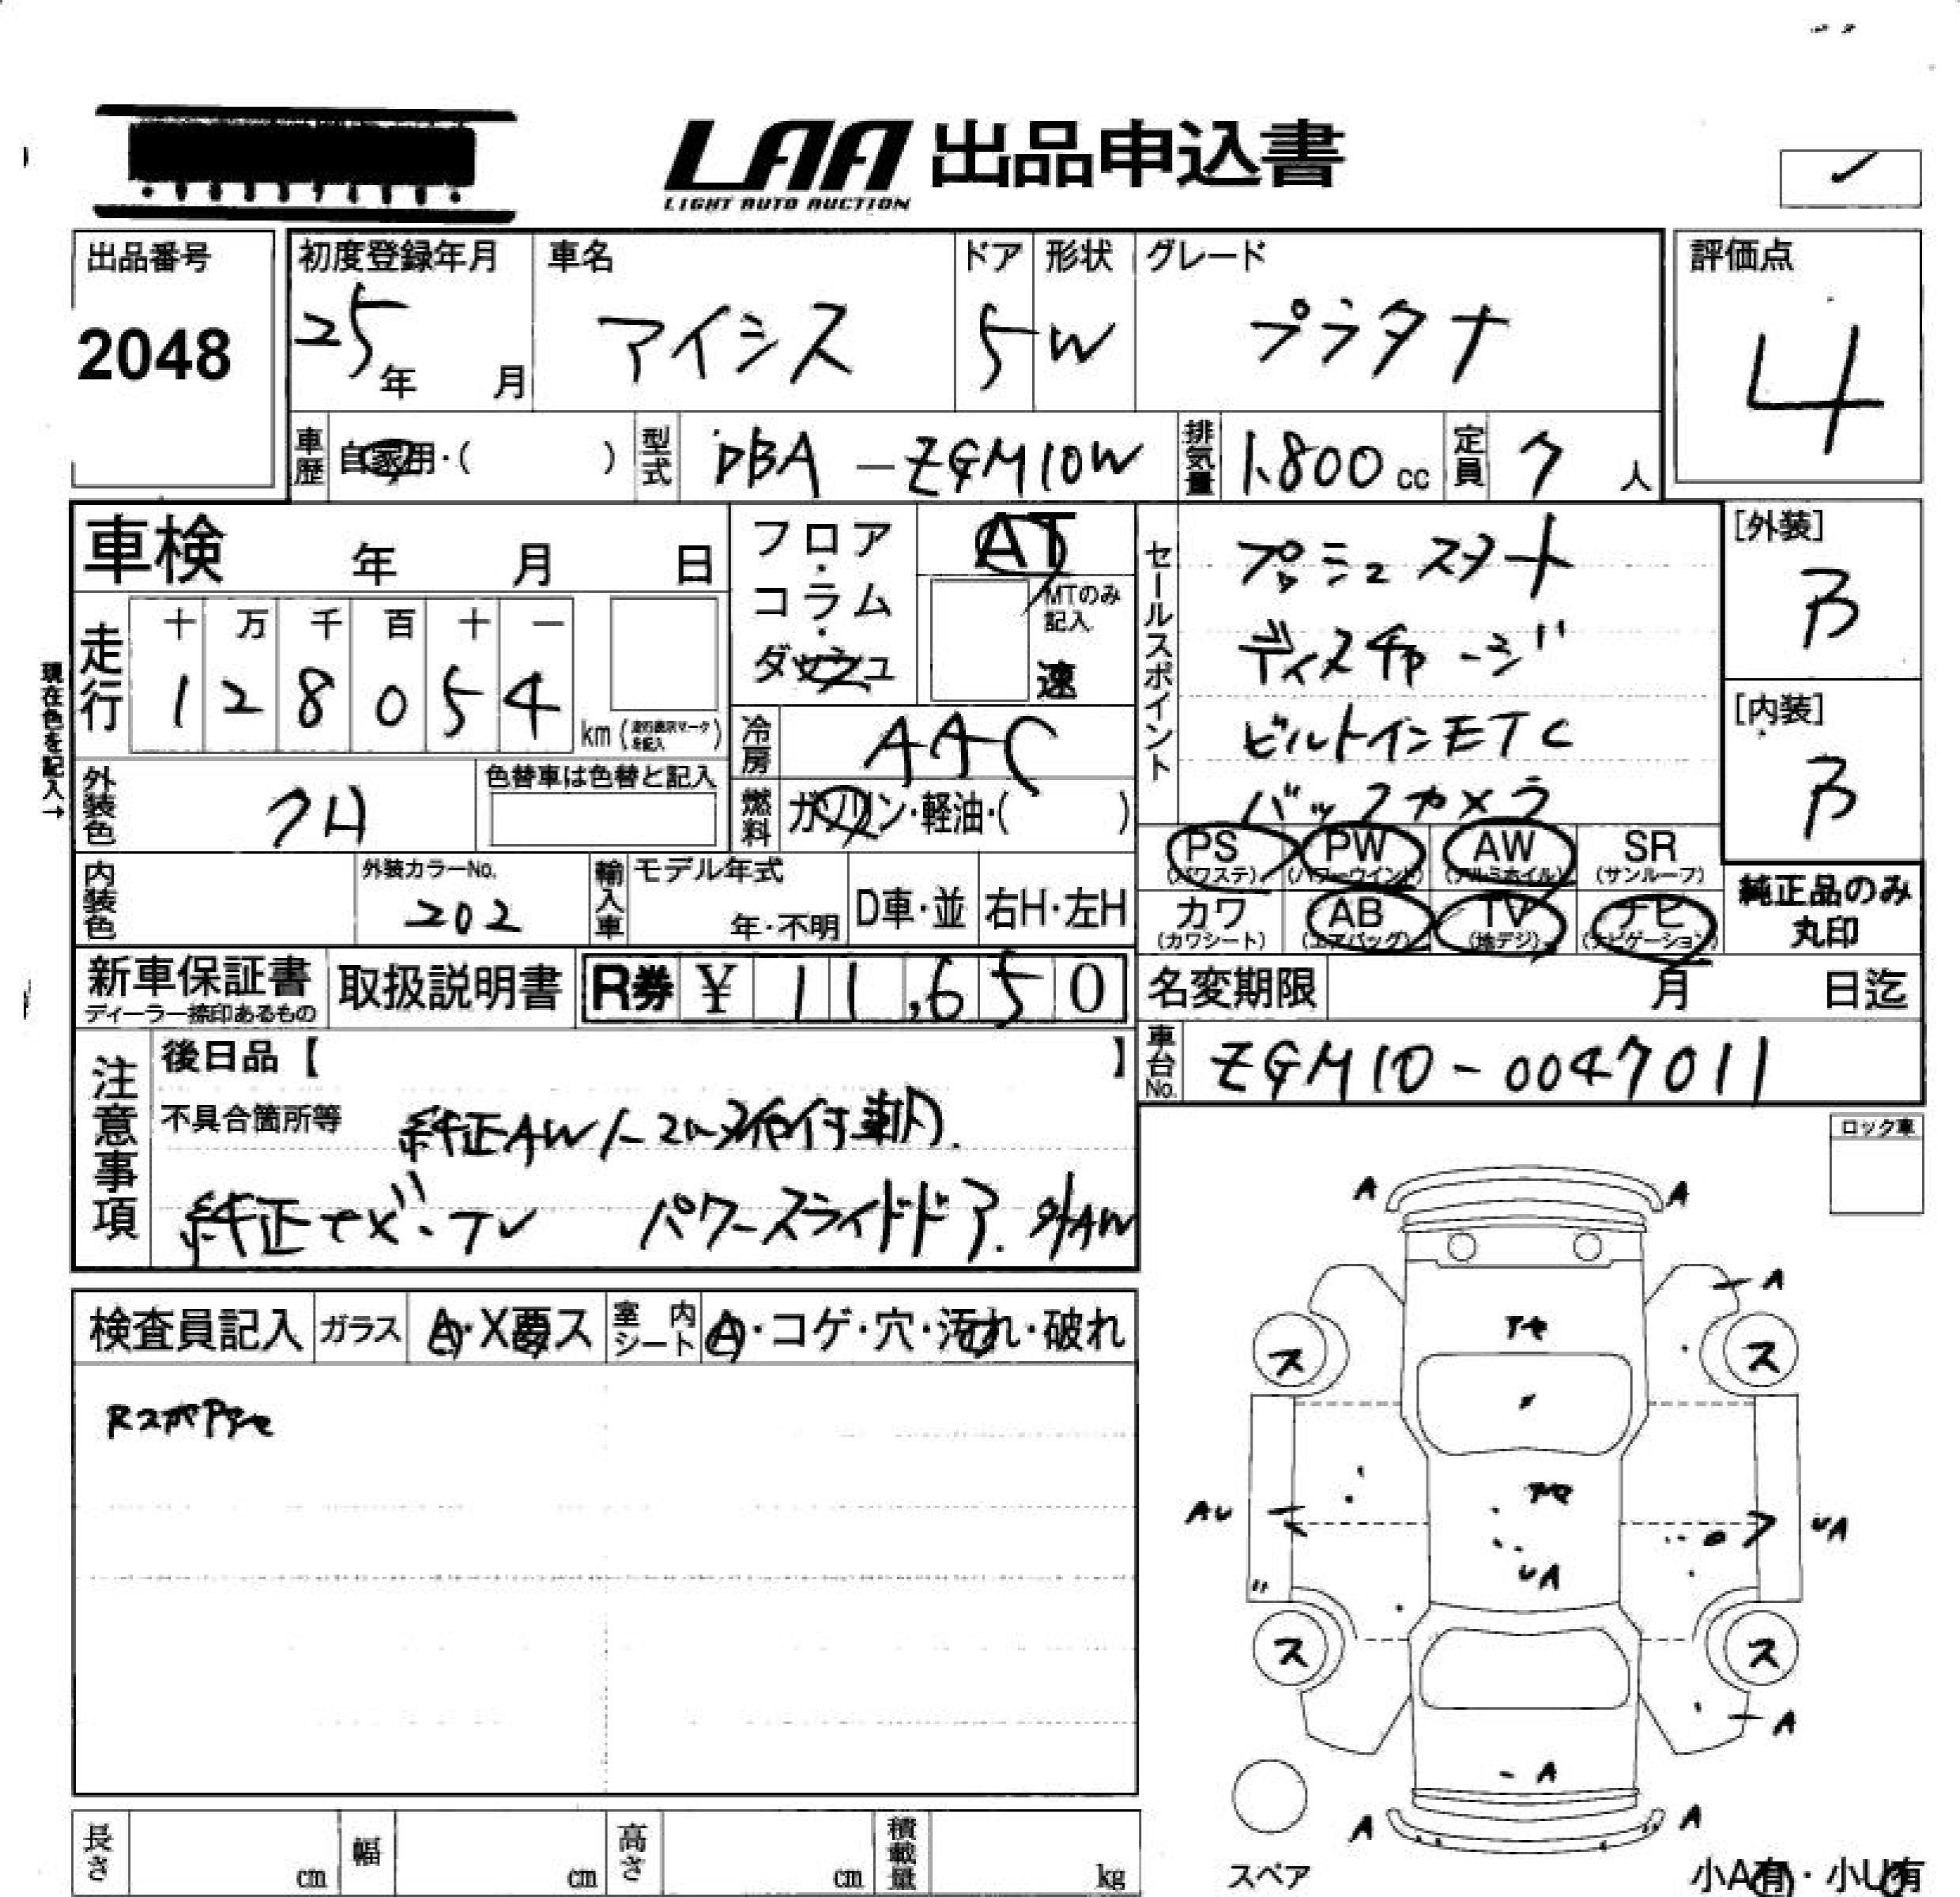 LAA 出品申込書
LIGHT AUTO AUCTION
出品番号
2048
初度登録年月
25年 月
車名
アイシス
ドア
5
形状
W
グレード
プラタナ
評価点
4
車歴
自家用・( )
型式
DBA-ZGM10W
排気量
1.800cc
定員
7人
車検 年 月 日
フロア・コラム・ダッシュ
AT
MTのみ記入
速
走行
十 万 千 百 十 一
1 2 8 0 5 4
km(
を記入)
現在色を記入→
冷房
AAC
外装色
クロ
色替車は色替と記入
燃料
ガソリン・軽油・( )
内装色
外装カラーNo.
202
輸入車
モデル年式
年・不明
D車・並
右H・左H
新車保証書
ディーラー捺印あるもの
取扱説明書
R券 ¥ 11,650
セールスポイント
プッシュスタート
ディスチャージ
ビルトインETC
バックカメラ
[外装]
B
[内装]
B
PS PW AW SR
(パワステ) (パワーウインド) (アルミホイル) (サンルーフ)
カワ AB TV ナビ
(カワシート) (エアバッグ) (地デジ) (ナビゲーション)
純正品のみ
丸印
名変期限 月 日迄
車台No.
ZGM10-0047011
注意事項
後日品【 】
不具合箇所等
純正AW
純正ナビ・TV パワースライドドア. 外AW
ロック車
検査員記入
ガラス
A・X要ス
室内シート
A・コゲ・穴・汚れ・破れ
A A
A
ス ス
AU UA
UA
ス ス
A
A
A A
スペア
小A有・小U有
長さ cm
幅 cm
高さ cm
積載量 kg